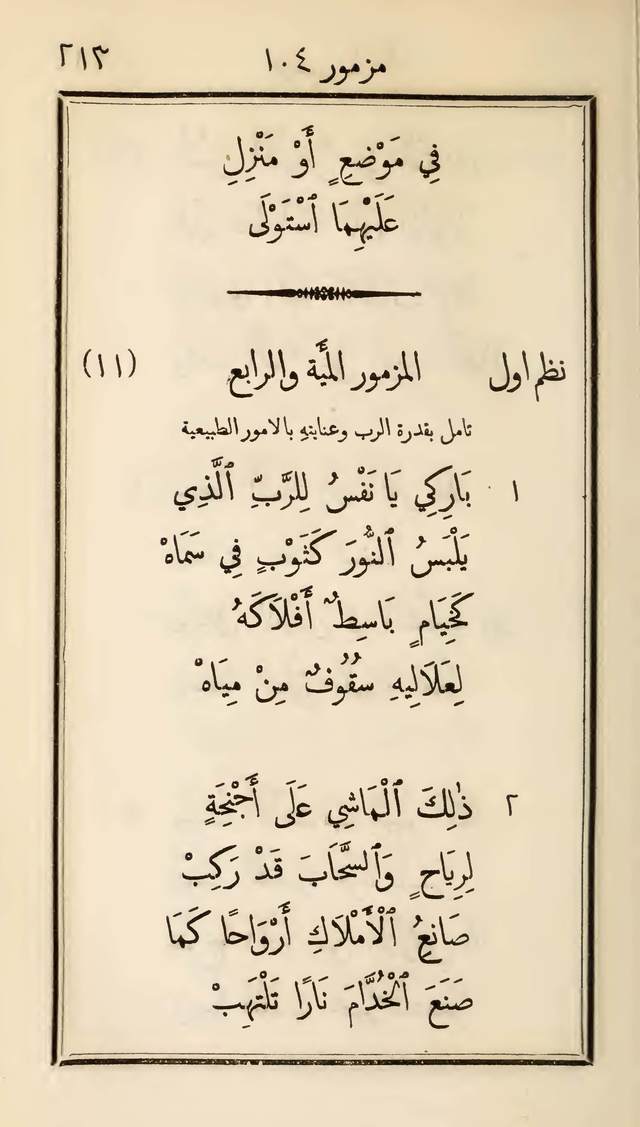 مزمور ١٠٤ ٢١٣
فِي مَوْضِعٍ أَوْ مَنْزِلِ
عَلَيْهِمَا ٱسْتَوْلَى
نظم اول المزمور المئَة والرابع (١١)
تامل بقدرة الرب وعنايتهِ بالامور الطبيعية
١ بَارِكِي يَا نَفْسُ لِلرَّبِّ ٱلَّذِي
يَلْبَسُ ٱلنُّورَ كَثَوْبٍ فِي سَمَاهْ
كَخِيَامٍ بَاسِطٌ أَفْلَاكَهُ
لِعَلَالِيهِ سُقُوفٌ مِنْ مِيَاهْ
٢ ذٰلِكَ ٱلْمَاشِي عَلَى أَجْنِحَةٍ
لِرِيَاحٍ وَٱلسَّحَابَ قَدْ رَكِبْ
صَانِعُ ٱلْأَمْلَاكِ أَرْوَاحًا كَمَا
صَنَعَ ٱلْخُدَّامَ نَارًا تَلْتَهِبْ